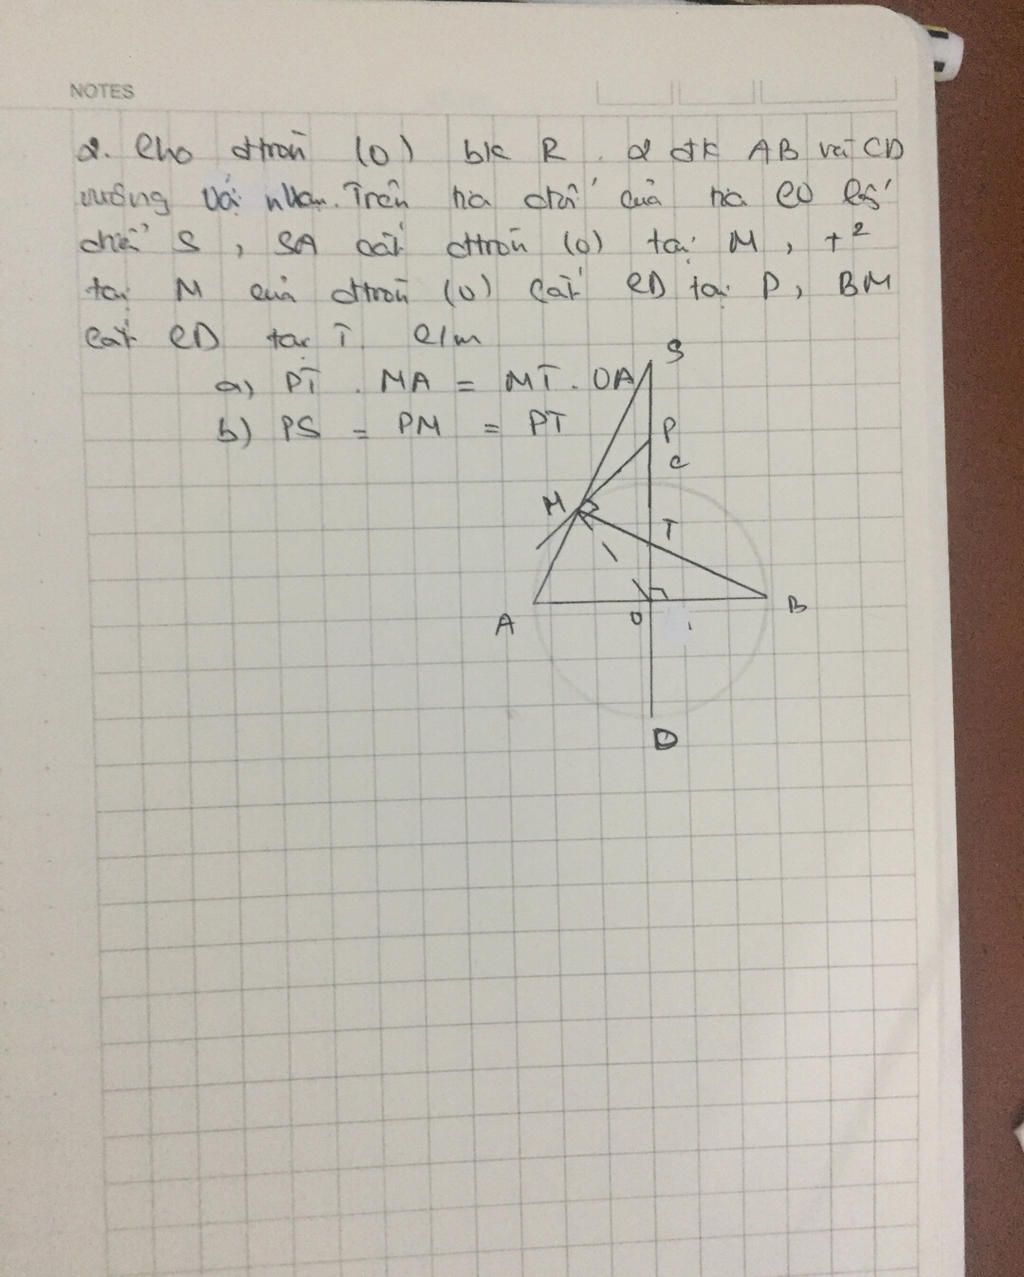 NOTES
2. Cho đtròn (O) bk R. 2 đk AB và CD
vuông với nhau. Trên tia đối của tia CO lấy
điểm S, SA cắt đtròn (O) tại M, t²
tại M của đtròn (O) cắt CD tại P, BM
cắt CD tại T c/m
a) PT . MA = MT . OA
b) PS = PM = PT
S
P
C
M
T
A
O
B
D